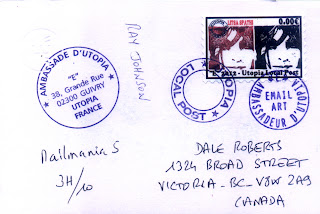 AMBASSADE D'UTOPIA
"E"
38, Grande Rue
02300 GUIVRY
UTOPIA
FRANCE
RAY JOHNSON
0.00€
2012 - Utopia Local Post
UTOPIA
LOCAL POST
EMAIL
ART
AMBASSADEUR D'UTOPIA
Mailmania 5
3H/10
DALE ROBERTS
1324 BROAD STREET
VICTORIA - BC - V8W 2A9
CANADA